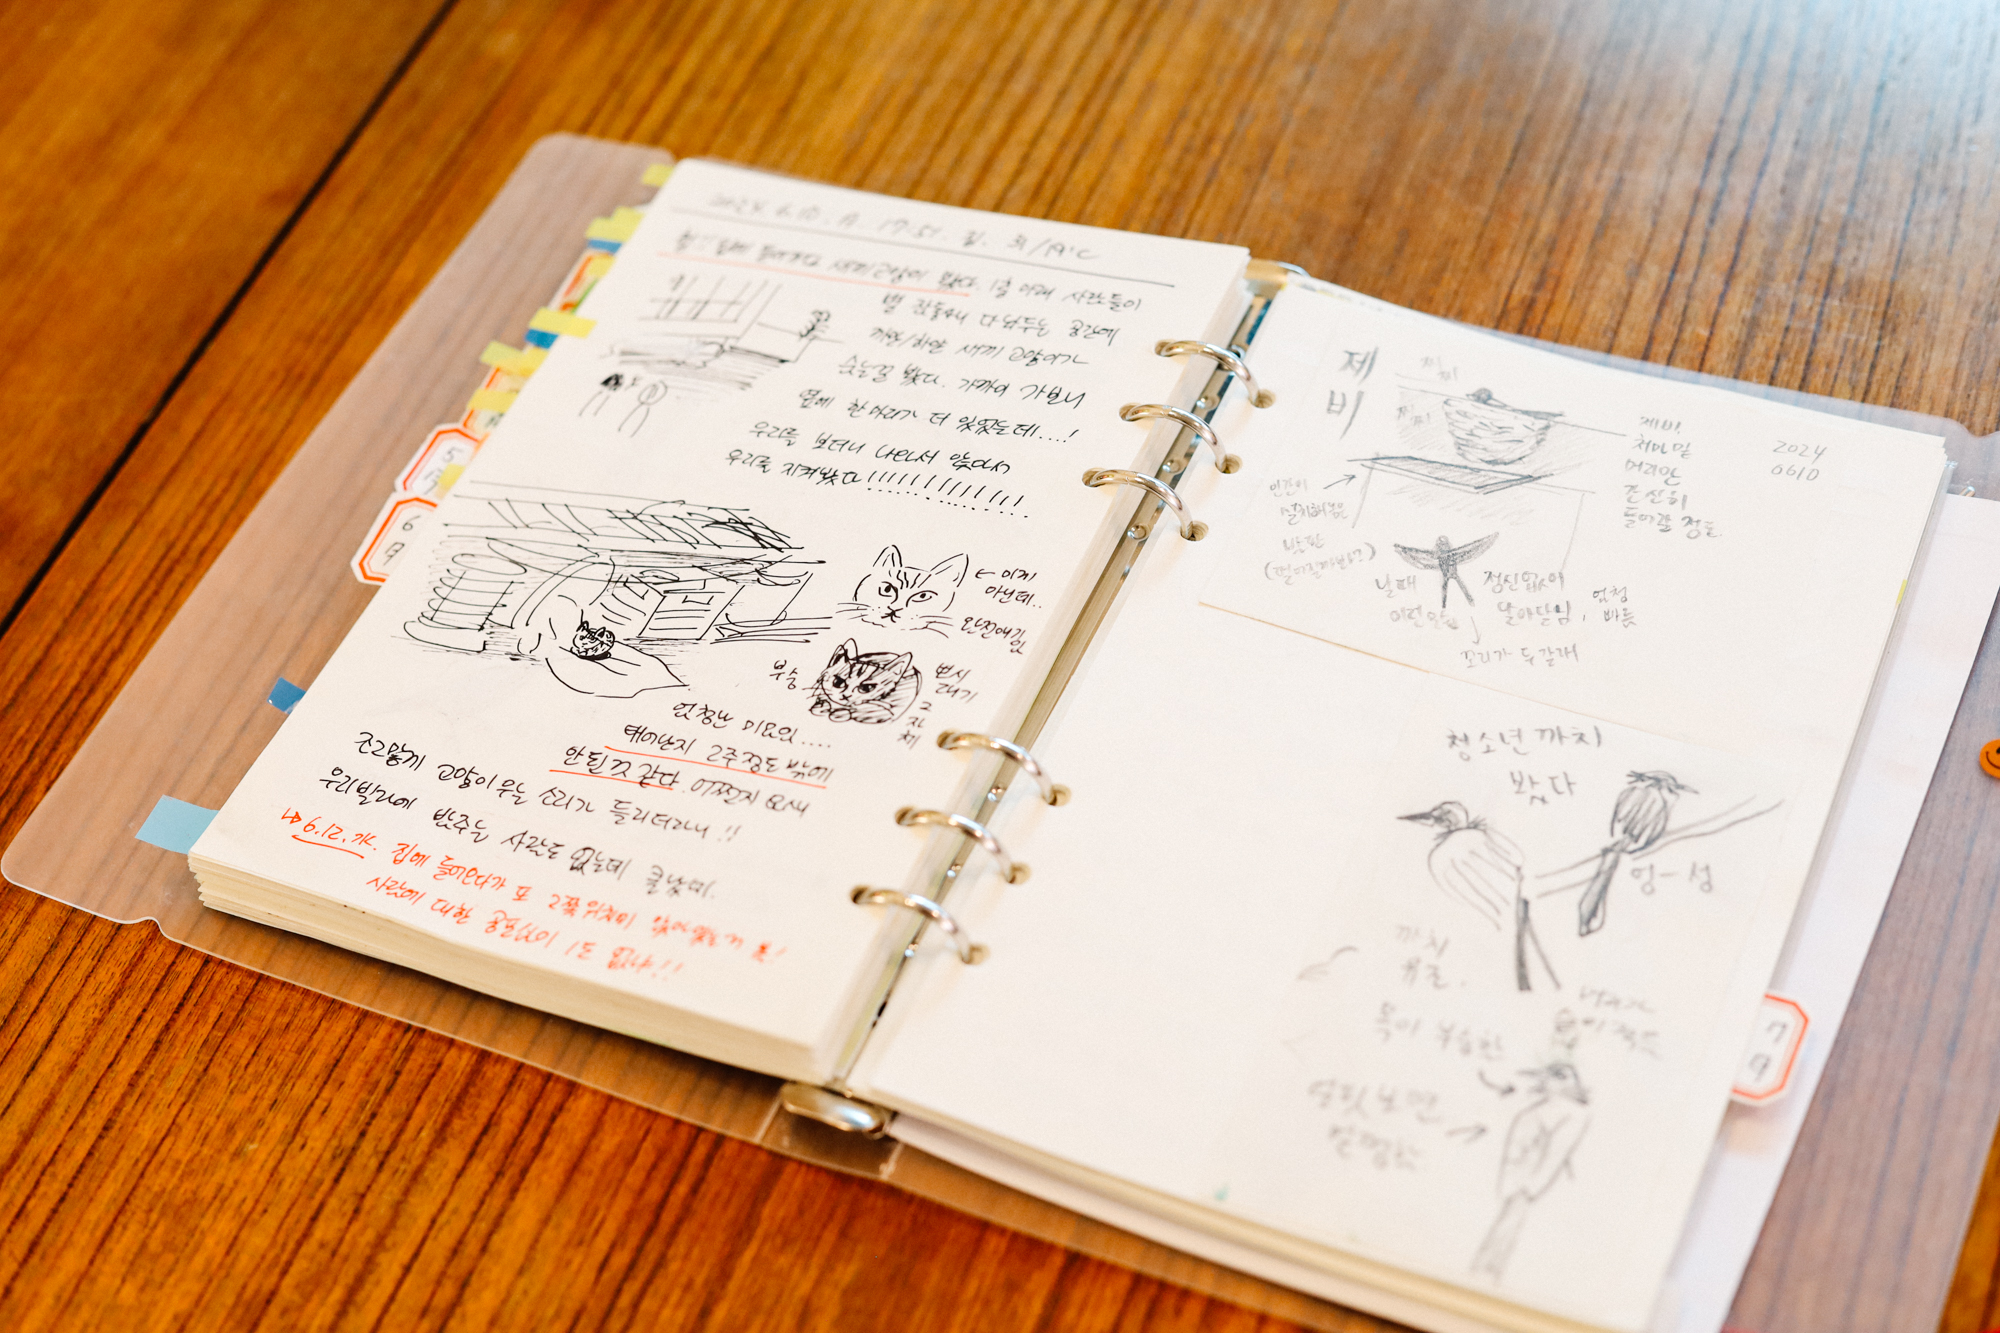 2024. 6. 10. 월. 17:51. 집. 흐/19°C
집에 들어가다 새끼고양이 봤다. 1층 아래 사람들이
별 잡동사니 다 놔두는 공간에
까만/하얀 새끼 고양이가
숨는걸 봤다. 가까이 가보니
옆에 한마리가 더 있었는데....!
우리를 보더니 나란히 앉아서
우리를 지켜봤다!!!!!!!!!!!!
← 이게
아닌데..
완전애김
부숭
뽀시
래기
그
자
체
엄청난 미모임....
태어난지 2주정도 밖에
안된것 같다. 어쩐지 요새
조그맣게 고양이 우는 소리가 들리더라니!!
우리빌라에 밥주는 사람도 없는데 클났네.
↳ 6.12.가. 집에 들어오다가 또 2쪽위치에 앉아있는거 봄!
사람에 대한 공포심이 1도 없냐!!
5
월
6
月
제
비
찌찌
찌찌
제비
처마밑
머리만
간신히
들어갈 정도
2024
0610
인간이
설치해놓은
받판
(떨어질까봐?)
날때
이런모양
정신없이
날아다님,
엄청
빠름
꼬리가 두갈래
청소년까치
봤다
엉-성
까치
유조.
목이 부숭한
머리가
7
月